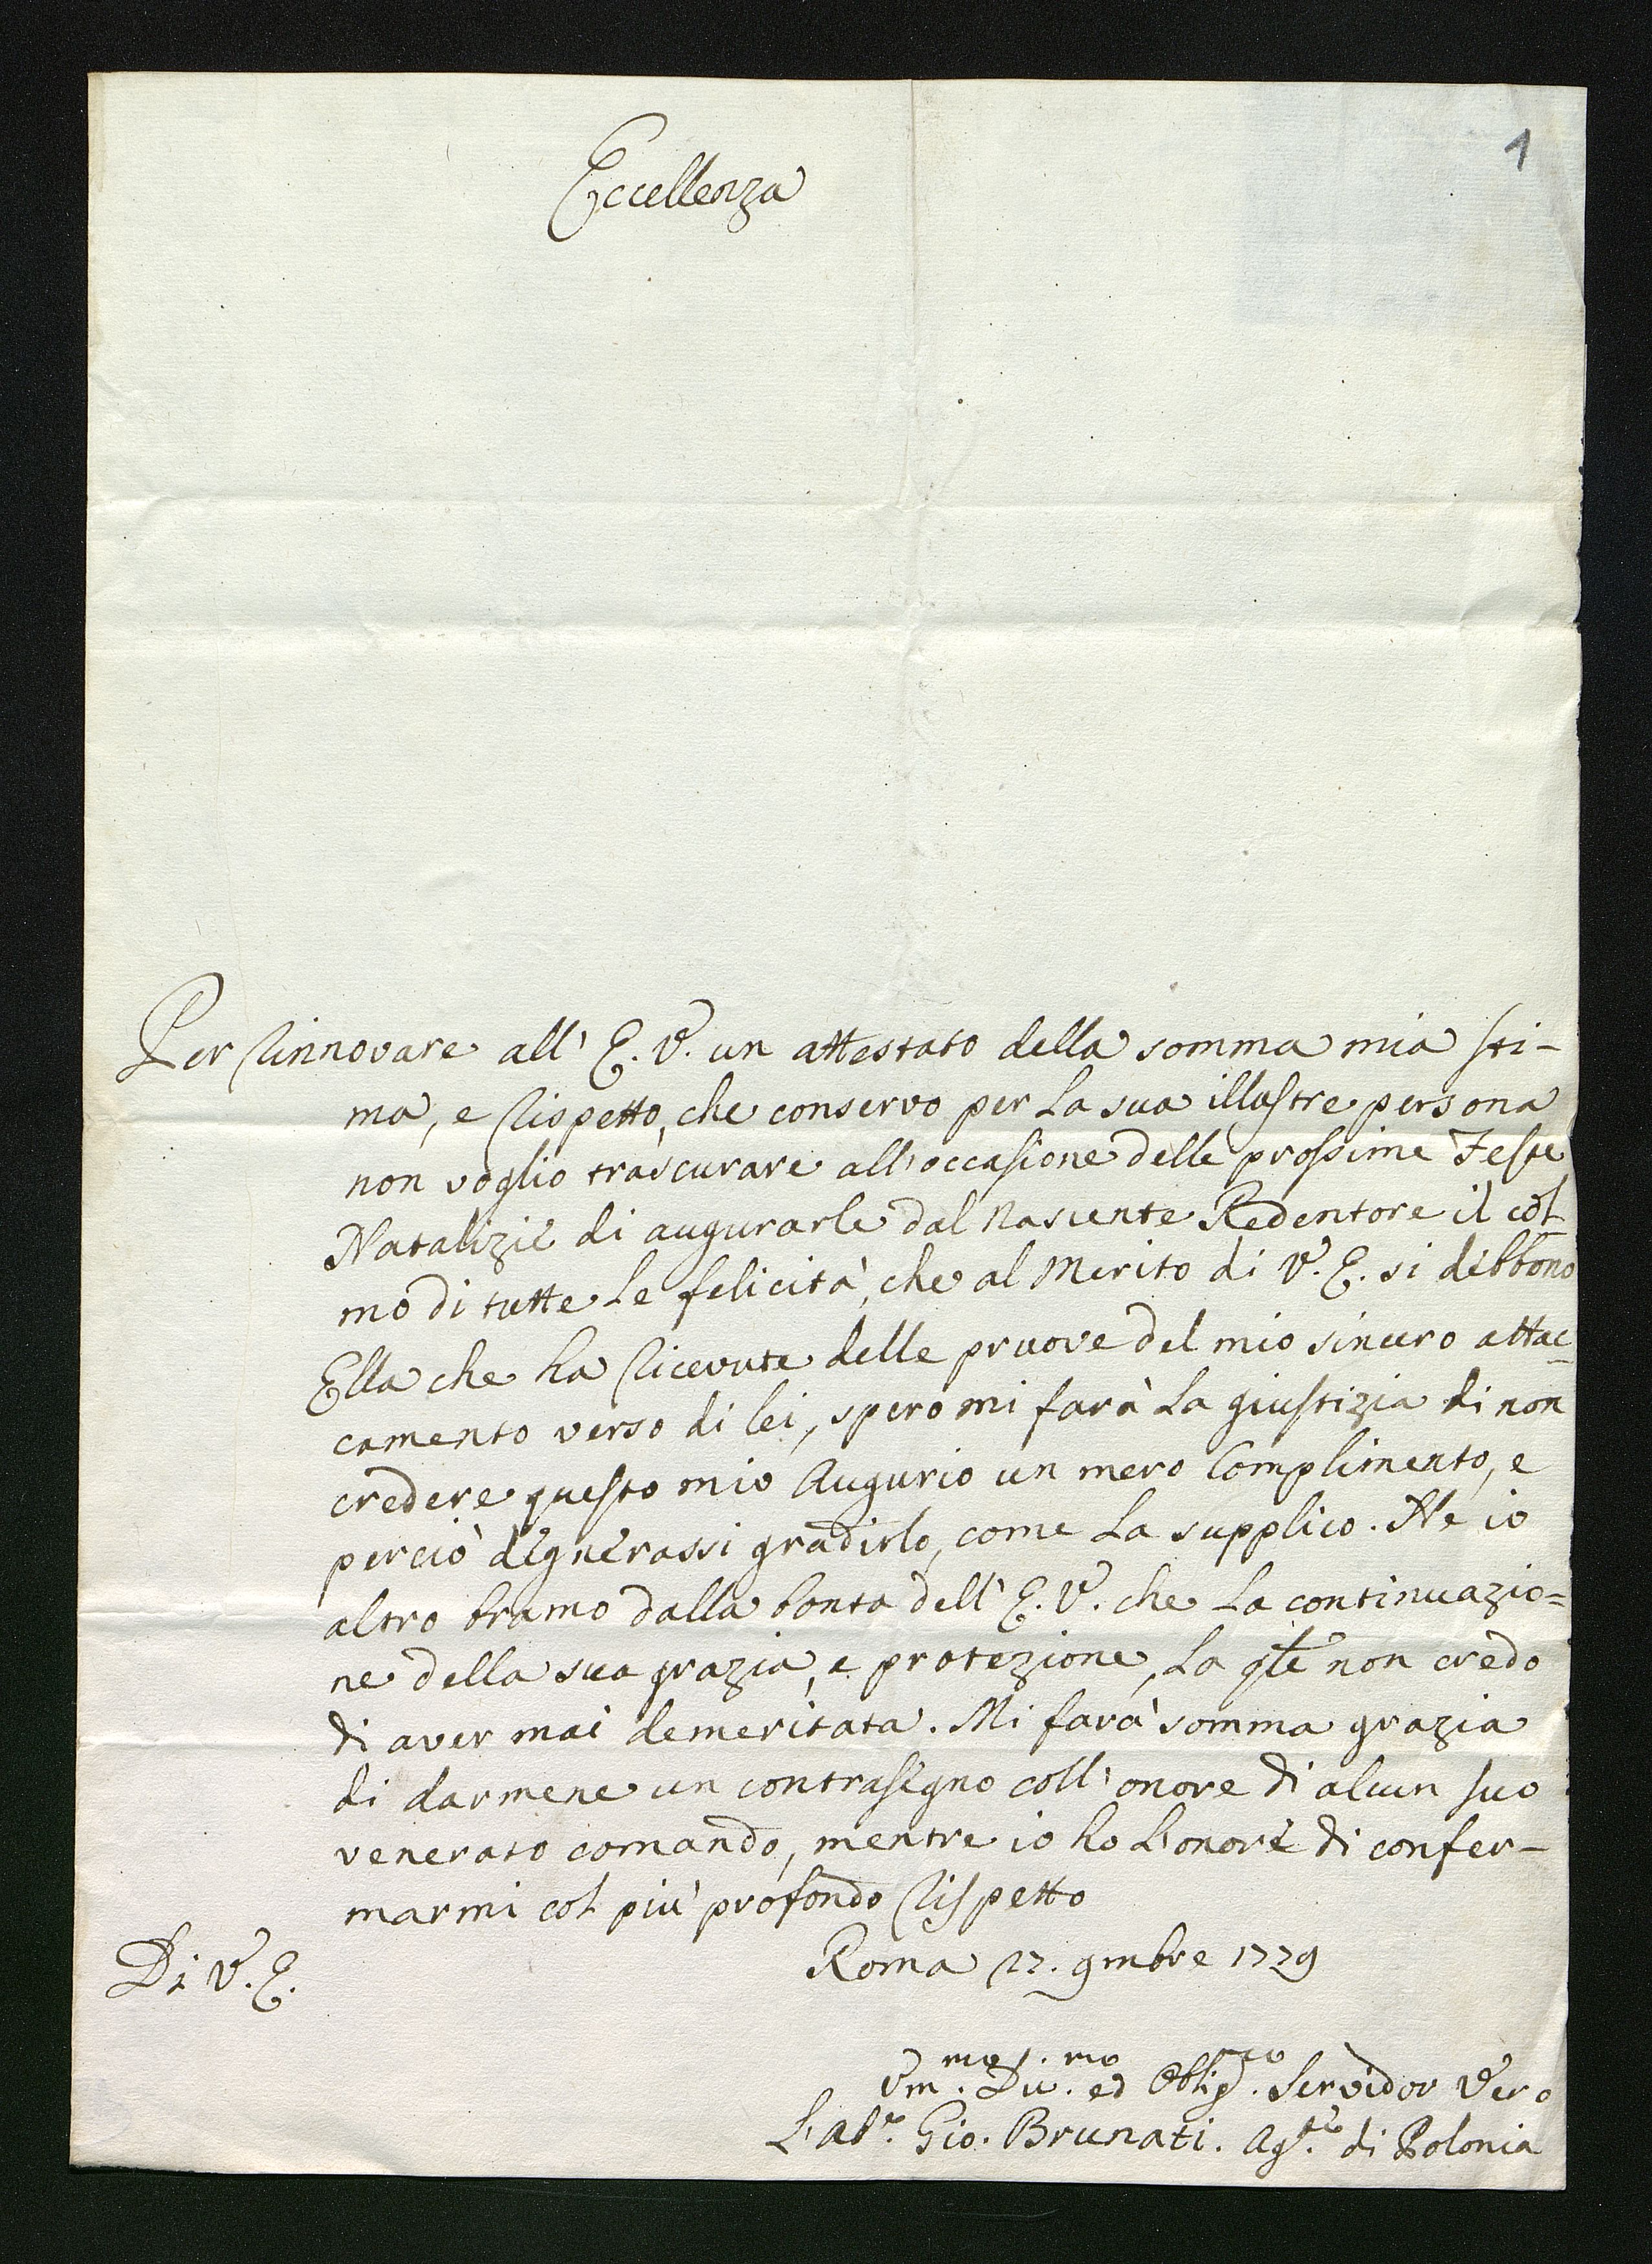 1
Eccellenza
Per rinnovare all' E. V. un attestato della somma mia sti-
ma, e rispetto, che conservo per la sua illustre persona
non voglio trascurare all'occasione delle prossime Feste
Natalizie di augurarle dal nascente Redentore il col
mo di tutte le felicità, che al Merito di V. E. si debbono
Ella che ha ricevute delle pruove del mio sincero attac-
camento verso di lei, spero mi farà la giustizia di non
credere questo mio Augurio un mero Complimento, e
perciò degnerassi gradirlo, come la supplico. Ne io
altro bramo dalla bonta dell' E. V. che la continuazio=
ne della sua grazia, e protezione, la qle non credo
di aver mai demeritata. Mi farà somma grazia
di darmene un contrasegno coll' onore di alcun suo
venerato comando, mentre io ho l'onore di confer-
marmi col più profondo rispetto
Di V. E.
Roma 27. 9mbre 1779
Um.mo Div.mo ed Obligo. Servidor Vero
L'Abe. Gio. Brunati. Agte. di Polonia